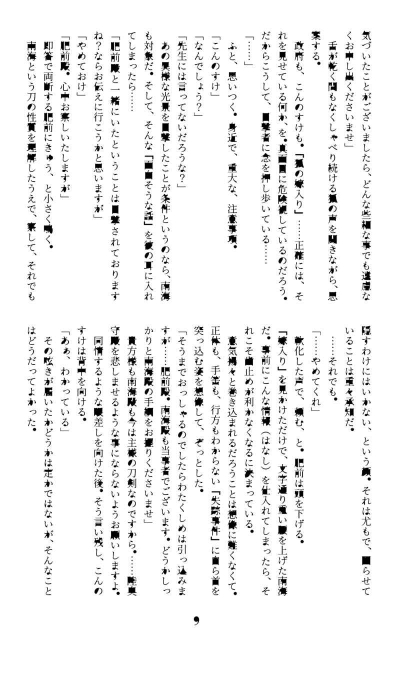 気づいたことがございましたら、どんな些細な事でも遠慮な
くお申し出くださいませ」
　舌が乾く間もなくしゃべり続ける狐の声を聞きながら、思
案する。
　政府も、こんのすけも。「狐の嫁入り」……正確には、そ
れを見せている何か、を、真面目に危険視しているのだろう。
だからこうして、目撃者に念を押し歩いている……
「……」
　ふと、思いつく。身近で、重大な、注意事項。
「こんのすけ」
「なんでしょう？」
「先生には言ってないだろうな？」
　あの異様な光景を目撃したことが条件というのなら、南海
も対象だ。そして、そんな「面白そうな話」を彼の耳に入れ
てしまったら……
「肥前殿と一緒にいたということは目撃されております
ね？ならお伝えに行こうかと思いますが」
「やめておけ」
「肥前殿。心中お察しいたしますが」
　即答で両断する肥前にきゅう、と小さく鳴く。
　南海という刀の性質を理解したうえで、察して、それでも
隠すわけにはいかない、という顔。それは尤もで、困らせて
いることは重々承知だ。
　……それでも。
「……やめてくれ」
　軟化した声で、頼む、と。肥前は頭を下げる。
「嫁入り」を見かけただけで、文字通り重い腰を上げた南海
だ。事前にこんな情報（はなし）を仕入れてしまったら、そ
れこそ歯止めが利かなくなるに決まっている。
　意気揚々と巻き込まれるだろうことは想像に難くなくて。
正体も、手筈も、行方もわからない「失踪事件」に自ら首を
突っ込む姿を想像して、ぞっとした。
「そうまでおっしゃるのでしたらわたくしめは引っ込みま
すが……肥前殿。南海殿も当事者でございます。どうかしっ
かりと南海殿の手綱をお握りくださいませ」
　貴方様も南海殿も今は主様の刀剣なのですから。……雛
守殿を悲しませるような事にならないようお願いしますよ。
　同情するような眼差しを向けた後。そう言い残し、こんの
すけは背中を向ける。
「あぁ、わかっている」
　その呟きが届いたかどうかは定かではないが、そんなこと
はどうだってよかった。
9